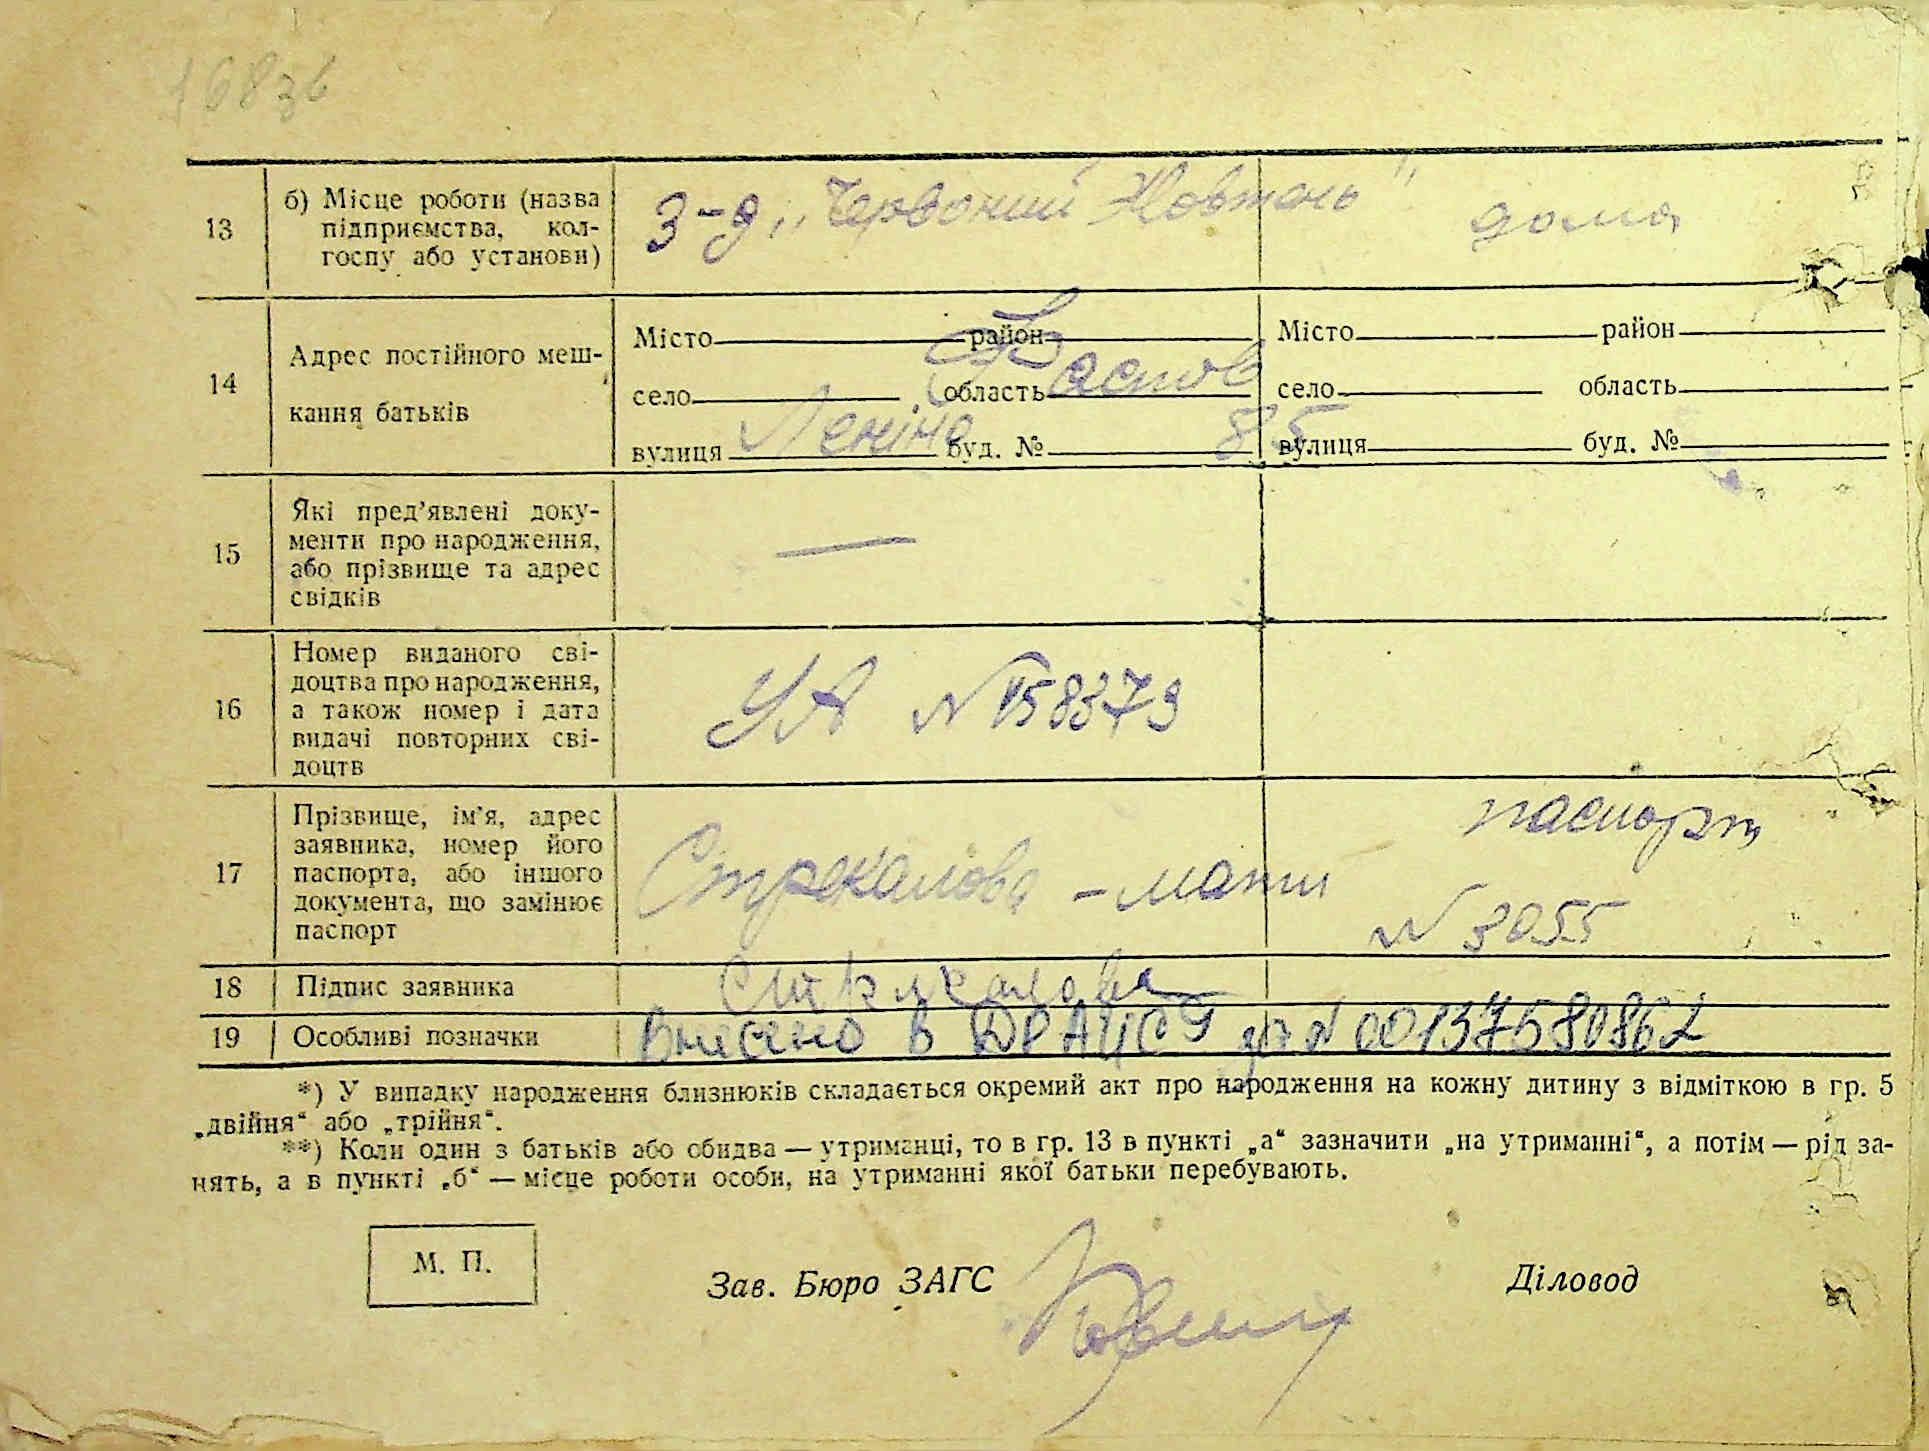 168зв
13
б) Місце роботи (назва
підприємства, кол-
госпу або установи)
З-д „Червоний Жовтень"
дома
14
Адрес постійного меш-
кання батьків
Місто район
Фастов
село область
вулиця Леніна буд. № 85
Місто район
село область
вулиця буд. №
15
Які пред'явлені доку-
менти про народження,
або прізвище та адрес
свідків
—
16
Номер виданого сві-
доцтва про народження,
а також номер і дата
видачі повторних сві-
доцтв
УА №158379
17
Прізвище, ім'я, адрес
заявника, номер його
паспорта, або іншого
документа, що замінює
паспорт
Стрекалова – мати
паспорт
№ 3055
18
Підпис заявника
Стрекалова
19
Особливі позначки
Внесено в ДРАЦСГ за № 00137580862
*) У випадку народження близнюків складається окремий акт про народження на кожну дитину з відміткою в гр. 5
„двійня“ або „трійня“.
**) Коли один з батьків або обидва — утриманці, то в гр. 13 в пункті „а“ зазначити „на утриманні“, а потім — рід за-
нять, а в пункті „б“ — місце роботи особи, на утриманні якої батьки перебувають.
М. П.
Зав. Бюро ЗАГС
Діловод